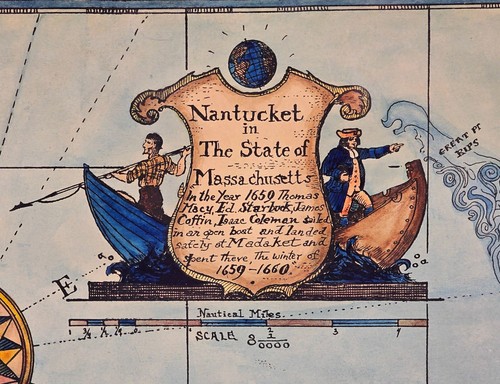 Nantucket
in
The State of
Massachusetts
In the Year 1650 Thomas
Macy, Ed. Starbuck, James
Coffin, Isaac Coleman sailed
in an open boat and landed
safely at Madaket and
spent there, The winter of
1659-1660.
GREAT PT
RIPS
E
Nautical Miles.
1/4 1/2 3/4 1 2 3 4
SCALE 1/80000